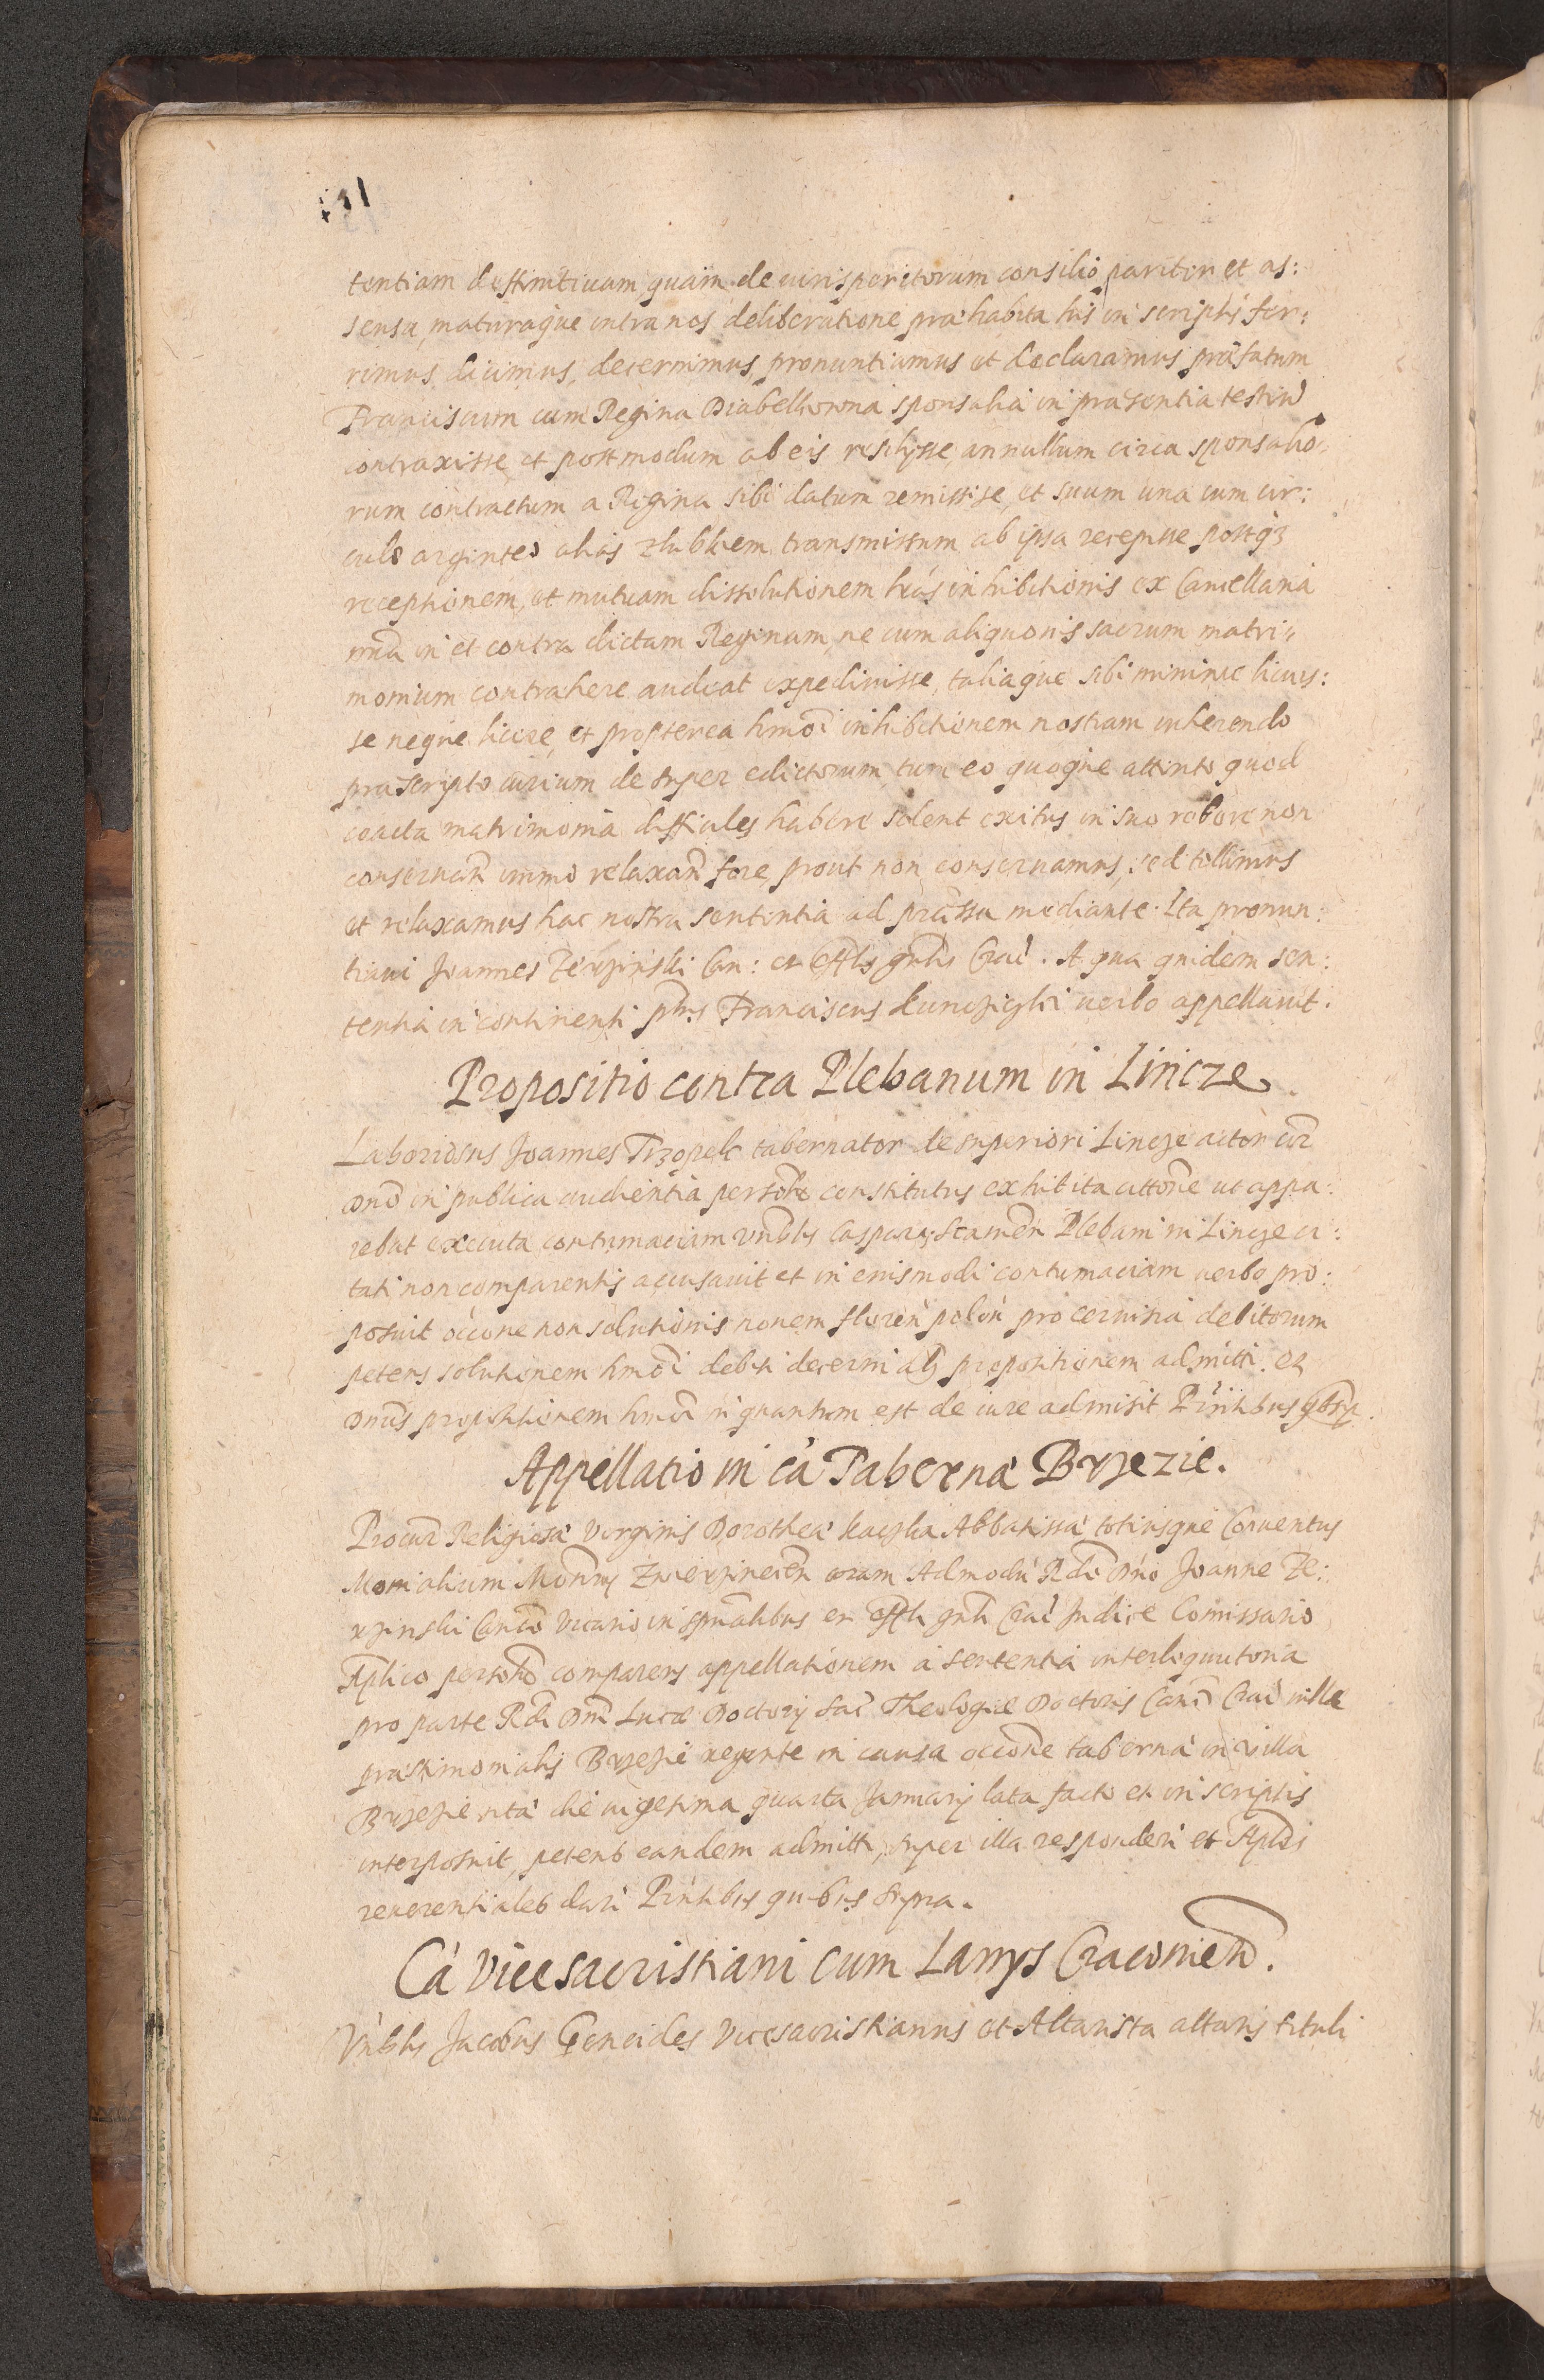 tentiam deffinitiuam quam de iurisperitorum consilio pariter et as:
sensu, maturaque intra nos deliberatione præhabita his in scriptis fer:
rimus, dicimus, decernimus, pronuntiamus et declaramus, præfatum
Franciscum cum Regina sponsalia in præsentia testiũ
contraxisse, et postmodum ab eis resilysse, annullum circa sponsalio:
rum contractum a Regina sibi datum remissise, et suum una cum cir:
culo argenteo aliàs transmissum ab ipsa recepisse postq3
receptionem, et mutuam dissolutionem lrãs inhibitionis ex Cancellaria
nrã in et contra dictam Reginam, ne cum aliquouis sacrum matri,,
monium contrahere audeat expediuisse, taliaque sibi minime licuis:
se neque licere, et propterea hmoi inhibitionem nostram inherendo
præscripto iurium de super edictorum, tum eo quoque attento quod
coacta matrimonia difficiles habere solent exitus in suo robore non
conseruãn immo relaxãn fore, prout non conseruamus, sed tollimus
et relaxamus hac nostra sententia ad præssa mediante. Ita pronun:
tiaui Joannes Zerzinski Can: et Offlis gnlis Crac̃. A qua quidem sen:
tentia in continenti Franciscus verbo appellauit.
Propositio contra Plebanum in Lincze
Laboriosus Joannes Trzopek tabernator de superiori Lincze actor cor̃
dño in publica audientia personãr constitutus exhibita cittõne ut appa:
rebat executa contumaciam vñblis Casparis Plebani in Lincze ci:
tati non comparentis accusauit et in eiusmodi contumaciam verbo pro:
posuit occõne non solutionis nouem floren̄ polon̄ pro ceruisia debitorum
petens solutionem hmoi debiti decerni propositionem admitti. Et
Dnus propositionem hmoi in quantum est de iure admisit Prñtibus
Appellatio in cã Tabernæ Brzezie.
Procur̃ Religiosæ Virginis Dorotheæ Kaczka Abbatissæ totiusque Conuentus
Monialium Monry Zwierzinecen̄ coram Admodũ Rdo Dño Joanne Ze:
rzinski Canco Vicario in sprñalibus et Offli gnli Crac̃ Judice Comissario
Aplico personãr comparens appellationem à sententia interloquutoria
pro parte Rdi Dni Lucæ Doctory Sac̃ Theologiæ Doctoris Canci Crac̃ villæ
præstimonialis Brzezie in causa occõne tabernæ in villa
Brzezie sitæ die uigesima quarta January lata facto et in scriptis
interposuit, petens eandem admitti, super illa responderi et Aplos
reuerentiales dari Prñtibus quibus supra.
Cã Vicesacristiani cum Lanys Cracouien̄.
Vñblis Jacobus Vicesacristianus et Altarista altaris tituli